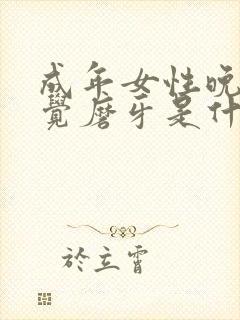 成年女性晚
覺磨牙是什
於立霄